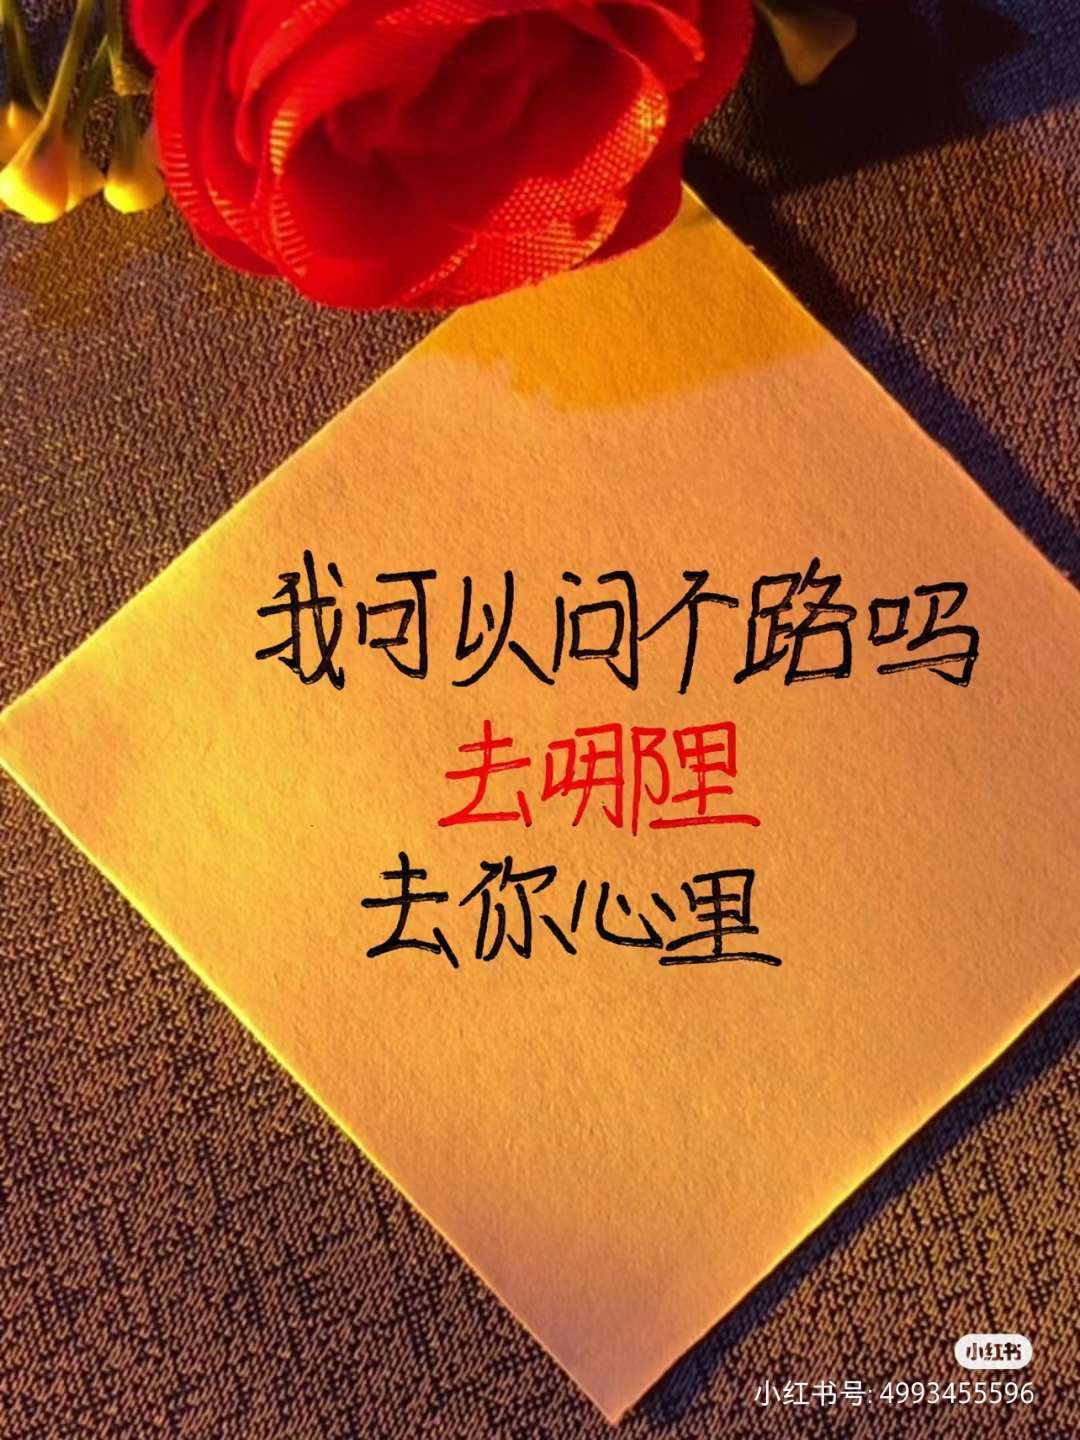 我可以问个路吗
去哪里
去你心里
小红书
小红书号: 4993455596